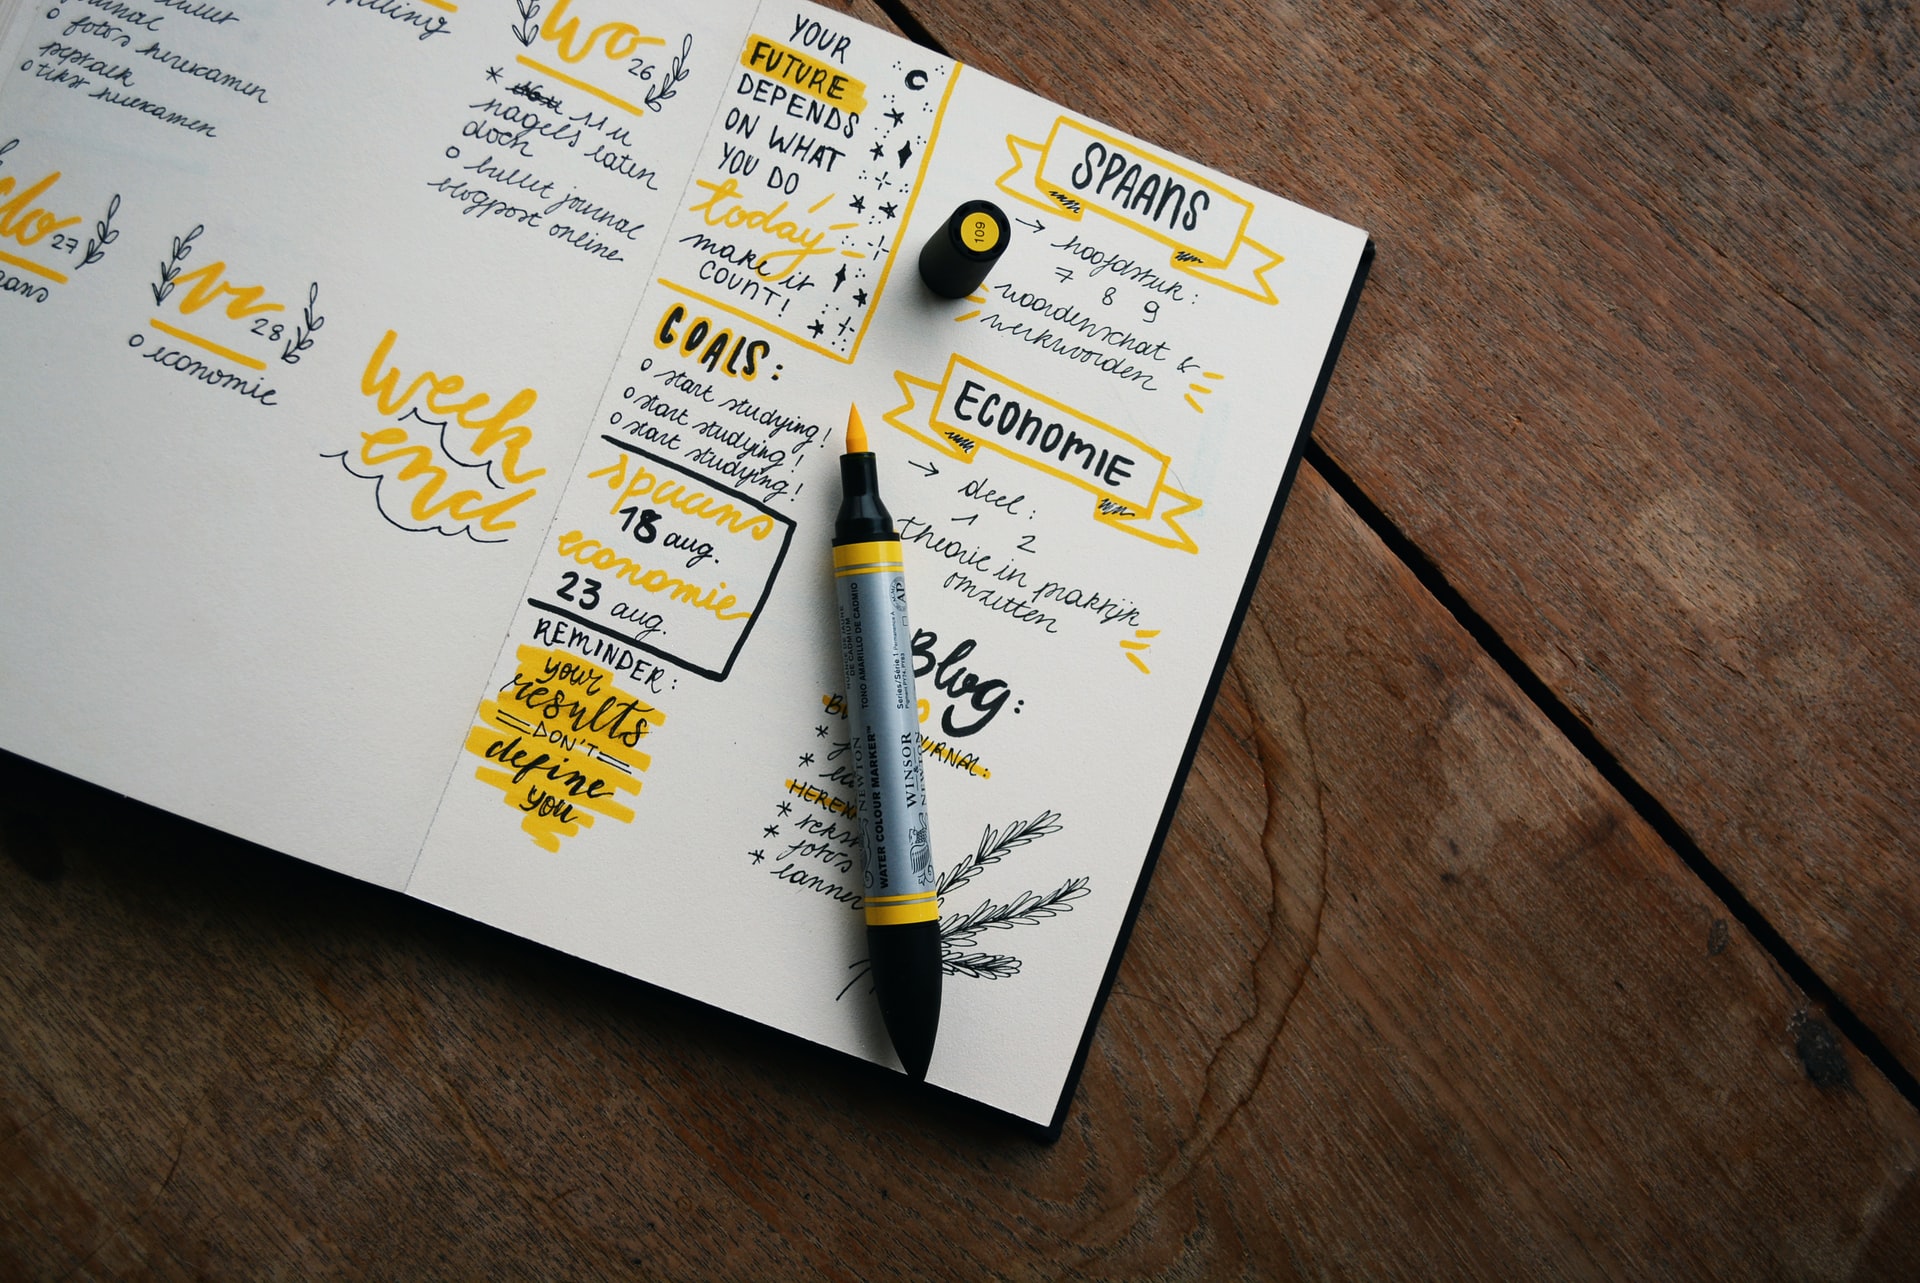 bullet
journal
o foto's herexamen
peptalk
o tekst herexamen
Wo 26
* 11 u
nagels laten
doen
o bullet journal
blogpost online
do 27
vr 28
o economie
Week
end
YOUR
FUTURE
DEPENDS
ON WHAT
YOU DO
today
make it
COUNT!
GOALS:
o start studying!
o start studying!
o start studying!
spaans
18 aug.
economie
23 aug.
REMINDER:
your
results
DON'T
define
you
109
SPAANS
→ hoofdstuk:
7 8 9
woordenschat &
werkwoorden
ECONOMIE
→ deel:
1 2
theorie in praktijk
omzetten
Blog:
*
*
* tekst
* foto's
*
DE CADMIUM
TONO AMARILLO DE CADMIO
Series/Série 1
AP
NEWTON
WATER COLOUR MARKER™
WINSOR
& NEWTON